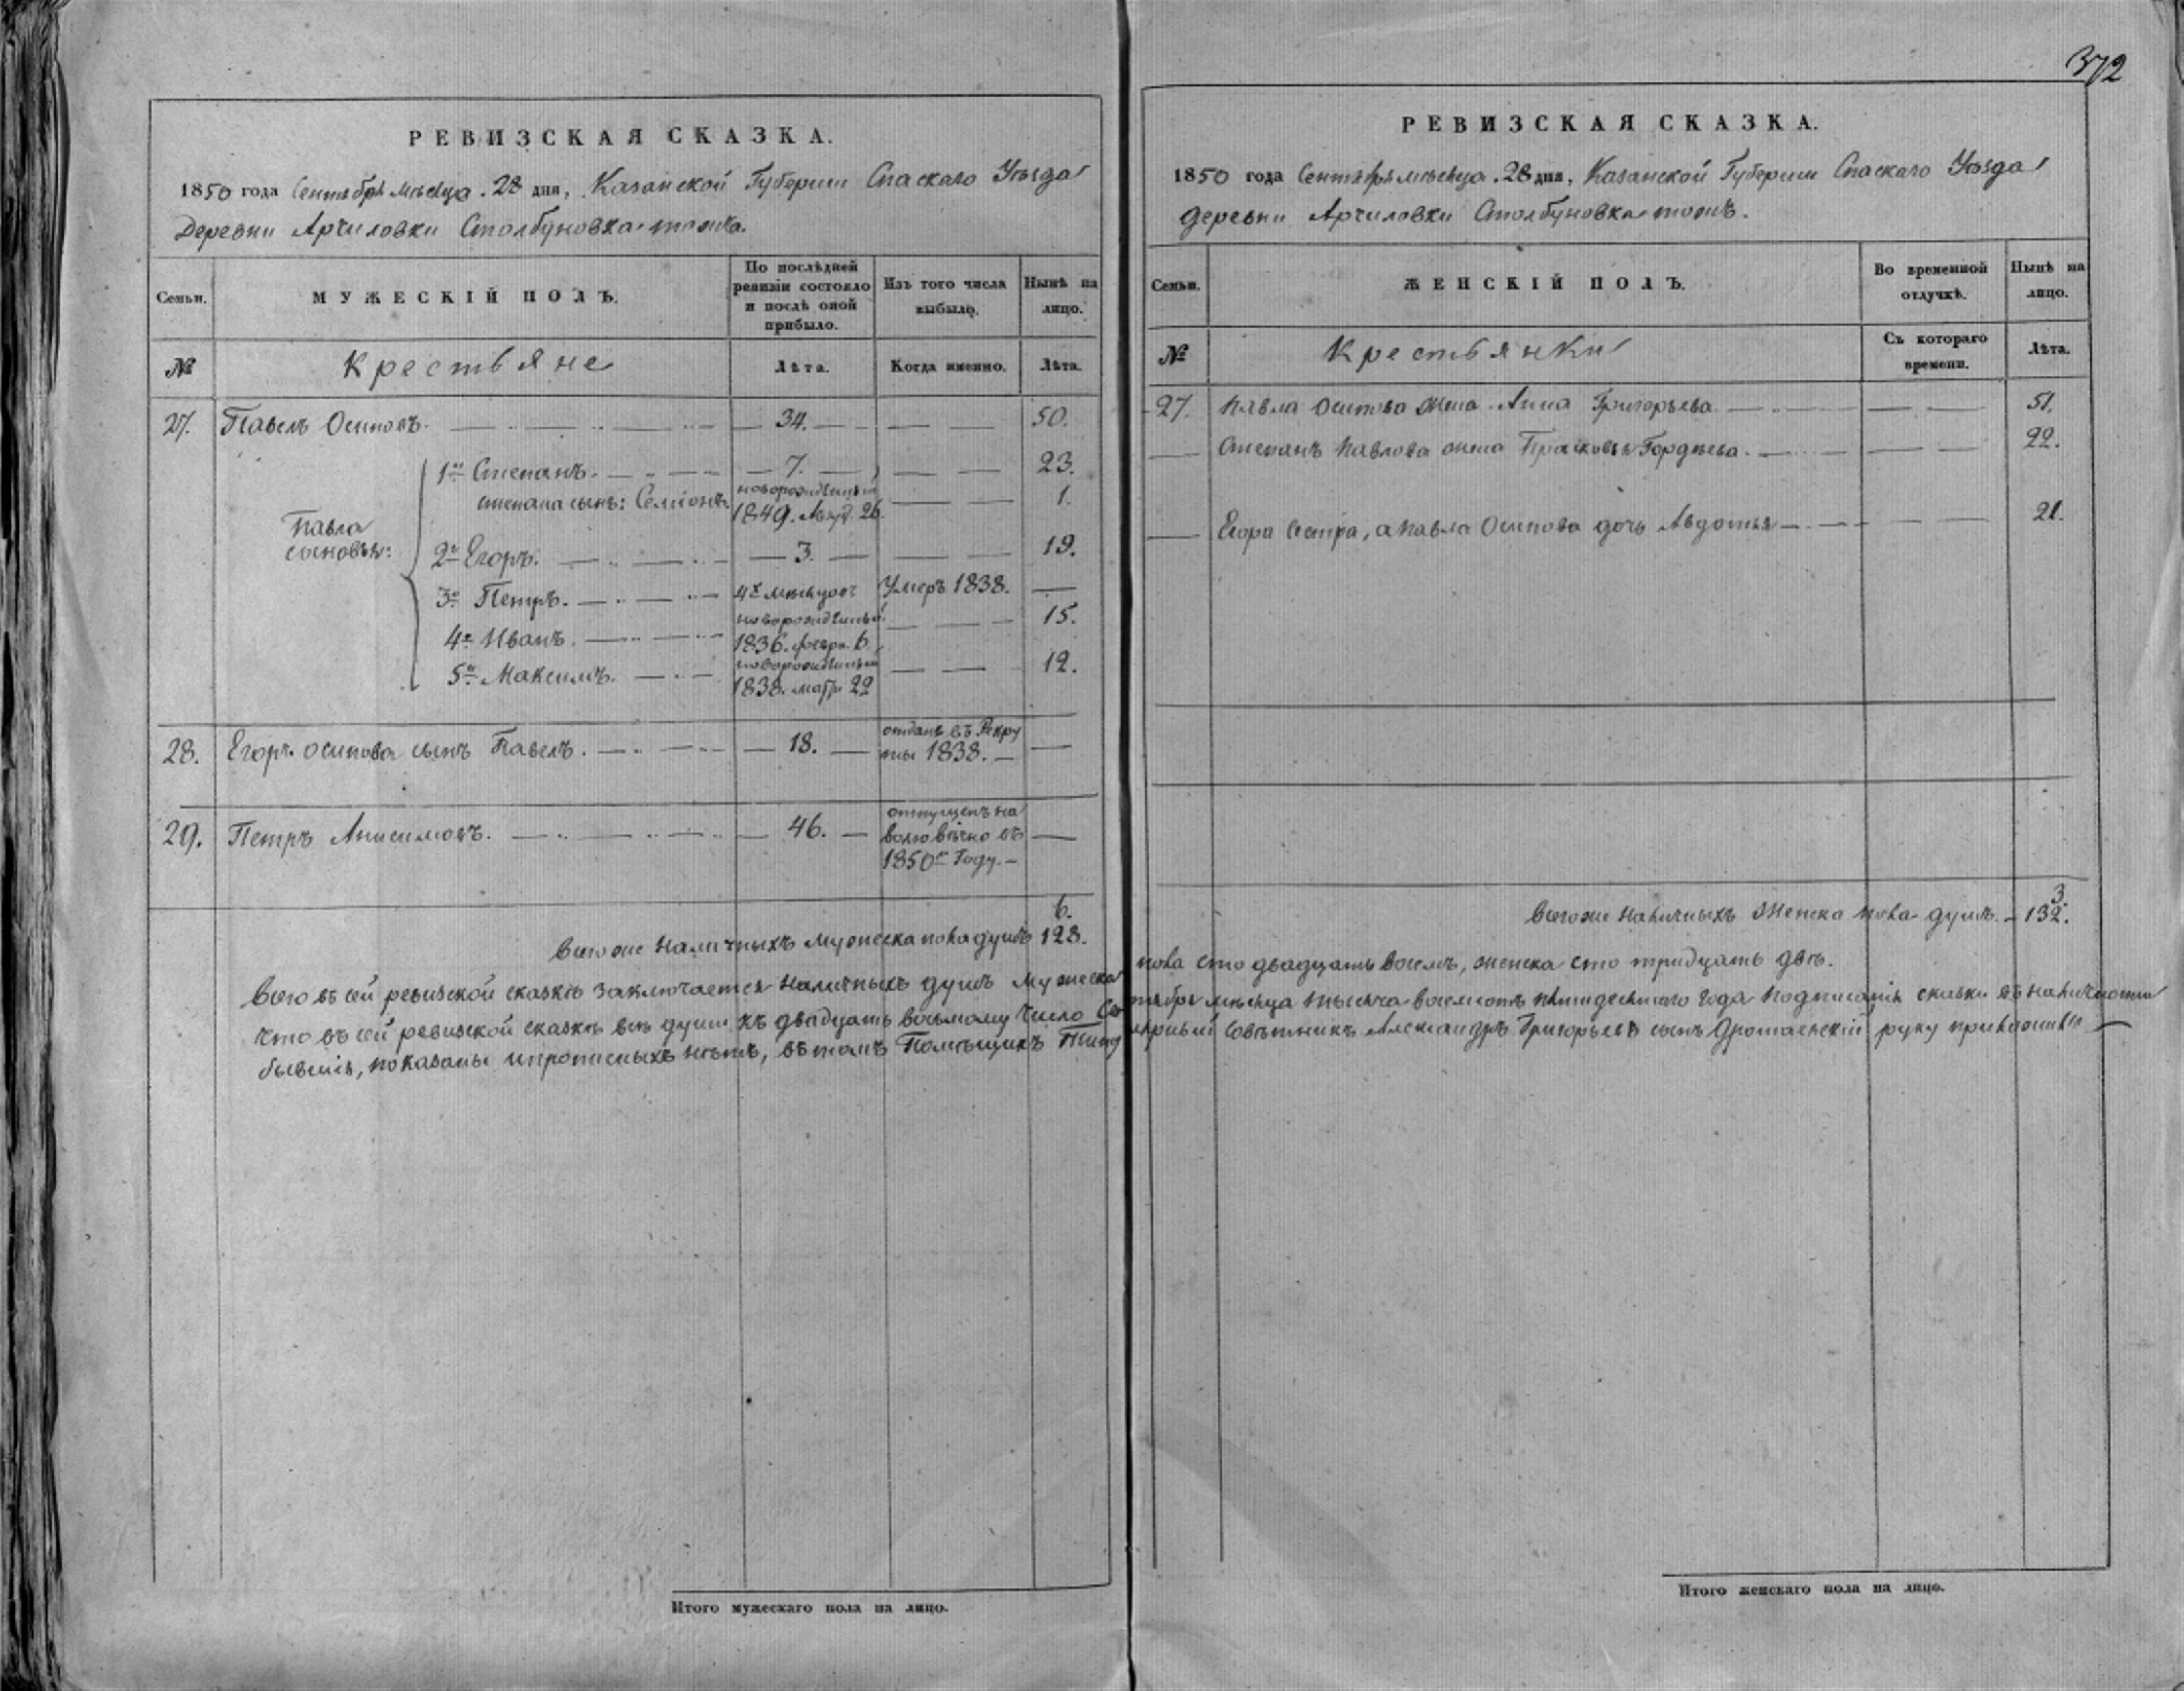 372
РЕВИЗСКАЯ СКАЗКА.
1850 года Сентября мѣсяца 28 дня, Казанской Губернии Спаскаго Уѣзда
Деревни Арчиловки Столбуновка-тожъ.
Семьи.
МУЖЕСКІЙ ПОЛЪ.
По послѣдней ревизіи состояло и послѣ оной прибыло.
Изъ того числа выбыло.
Нынѣ на лицо.
№
Крестьяне
Лѣта.
Когда именно.
Лѣта.
27. Павелъ Осиповъ. 34. 50.
Павла сыновья:
1й Степанъ. 7. 23.
Степана сынъ: Семіонъ. новорожденный 1849. 26. 1.
2й Егоръ. 3. 19.
3й Петръ. 4х мѣсяцовъ Умеръ 1838.
4й Иванъ. новорожденный 1836. февра. 6. 15.
5й Максимъ. новорожденный 1838. 22 12.
28. Егора Осипова сынъ Павелъ. 18. отданъ въ Рекруты 1838.
29. Петръ Анисимовъ. 46. отпущенъ на волю вѣчно въ 1850м Году.
6.
Всего же наличныхъ мужеска пола душъ 128.
РЕВИЗСКАЯ СКАЗКА.
1850 года Сентября мѣсяца 28 дня, Казанской Губернии Спаскаго Уѣзда
Деревни Арчиловки Столбуновка-тожъ.
Семьи.
ЖЕНСКІЙ ПОЛЪ.
Во временной отлучкѣ.
Нынѣ на лицо.
№
Крестьянки
Съ котораго времени.
Лѣта.
27. Павла Осипова жена Анна Григорьева. 51.
Степанъ Павлова жена Прасковья Гордѣева. 22.
Егора сестра, а Павла Осипова дочь Авдотья 21.
3.
Всего же наличныхъ женска пола душъ. 132.
Всего въ сей ревизской сказкѣ заключается наличныхъ душъ мужеска пола сто двадцать восемь, женска сто тридцать двѣ.
Что въ сей ревизской сказкѣ всѣ души къ двадцать восьмому число Сентября мѣсяца тысяча восемьсотъ пятидесятаго года подписанія сказки въ наличности
бывшія, показаны и прописныхъ нѣтъ, въ томъ Помѣщикъ Титулярный Совѣтникъ Александръ Григорьевъ сынъ руку приложилъ
Итого мужескаго пола на лицо.
Итого женскаго пола на лицо.